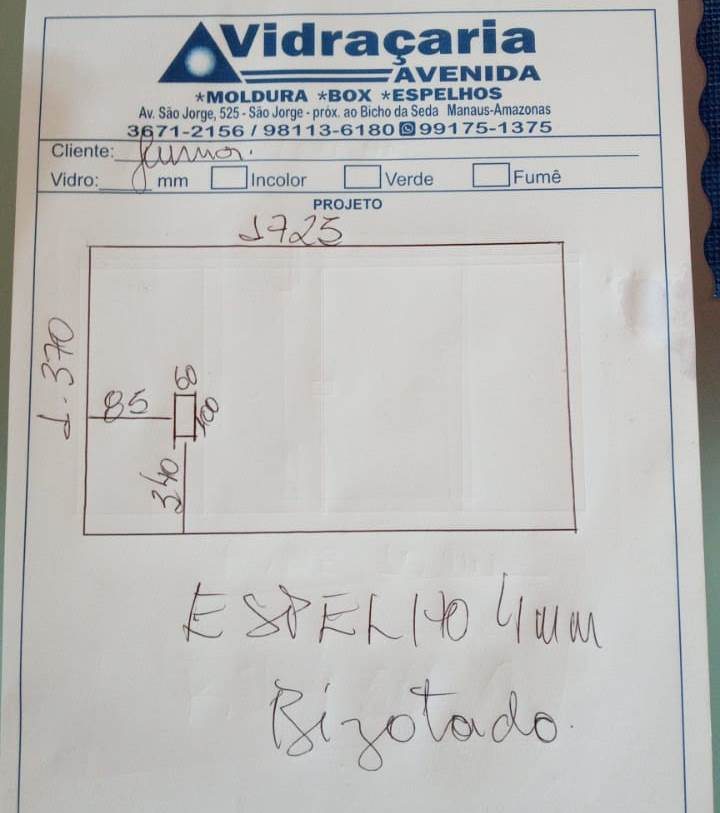 Vidraçaria
AVENIDA
*MOLDURA *BOX *ESPELHOS
Av. São Jorge, 525 - São Jorge - próx. ao Bicho da Seda Manaus-Amazonas
3671-2156 / 98113-6180 99175-1375
Cliente: Junior.
Vidro: mm Incolor Verde Fumê
PROJETO
1725
1.370
85
60
100
340
ESPELHO 4mm
Bizotado.